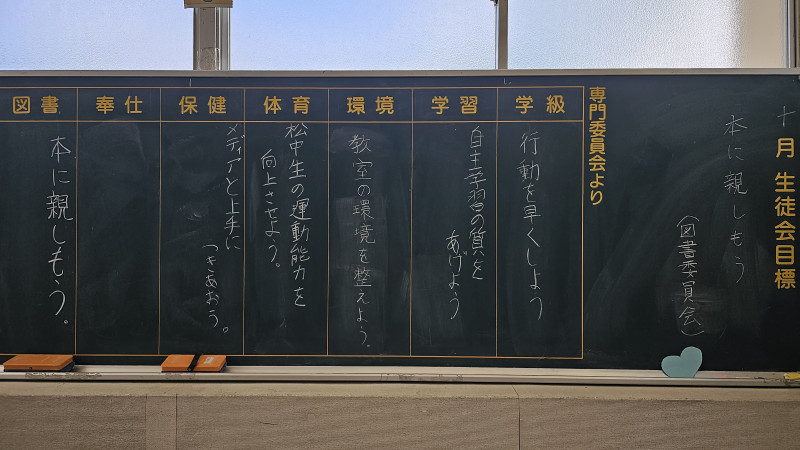 十月生徒会目標
本に親しもう
(図書委員会)
専門委員会より
学級
行動を早くしよう
学習
自主学習の質を
あげよう
環境
教室の環境を整えよう。
体育
松中生の運動能力を
向上させよう。
保健
メディアと上手に
つきあおう。
奉仕
図書
本に親しもう。